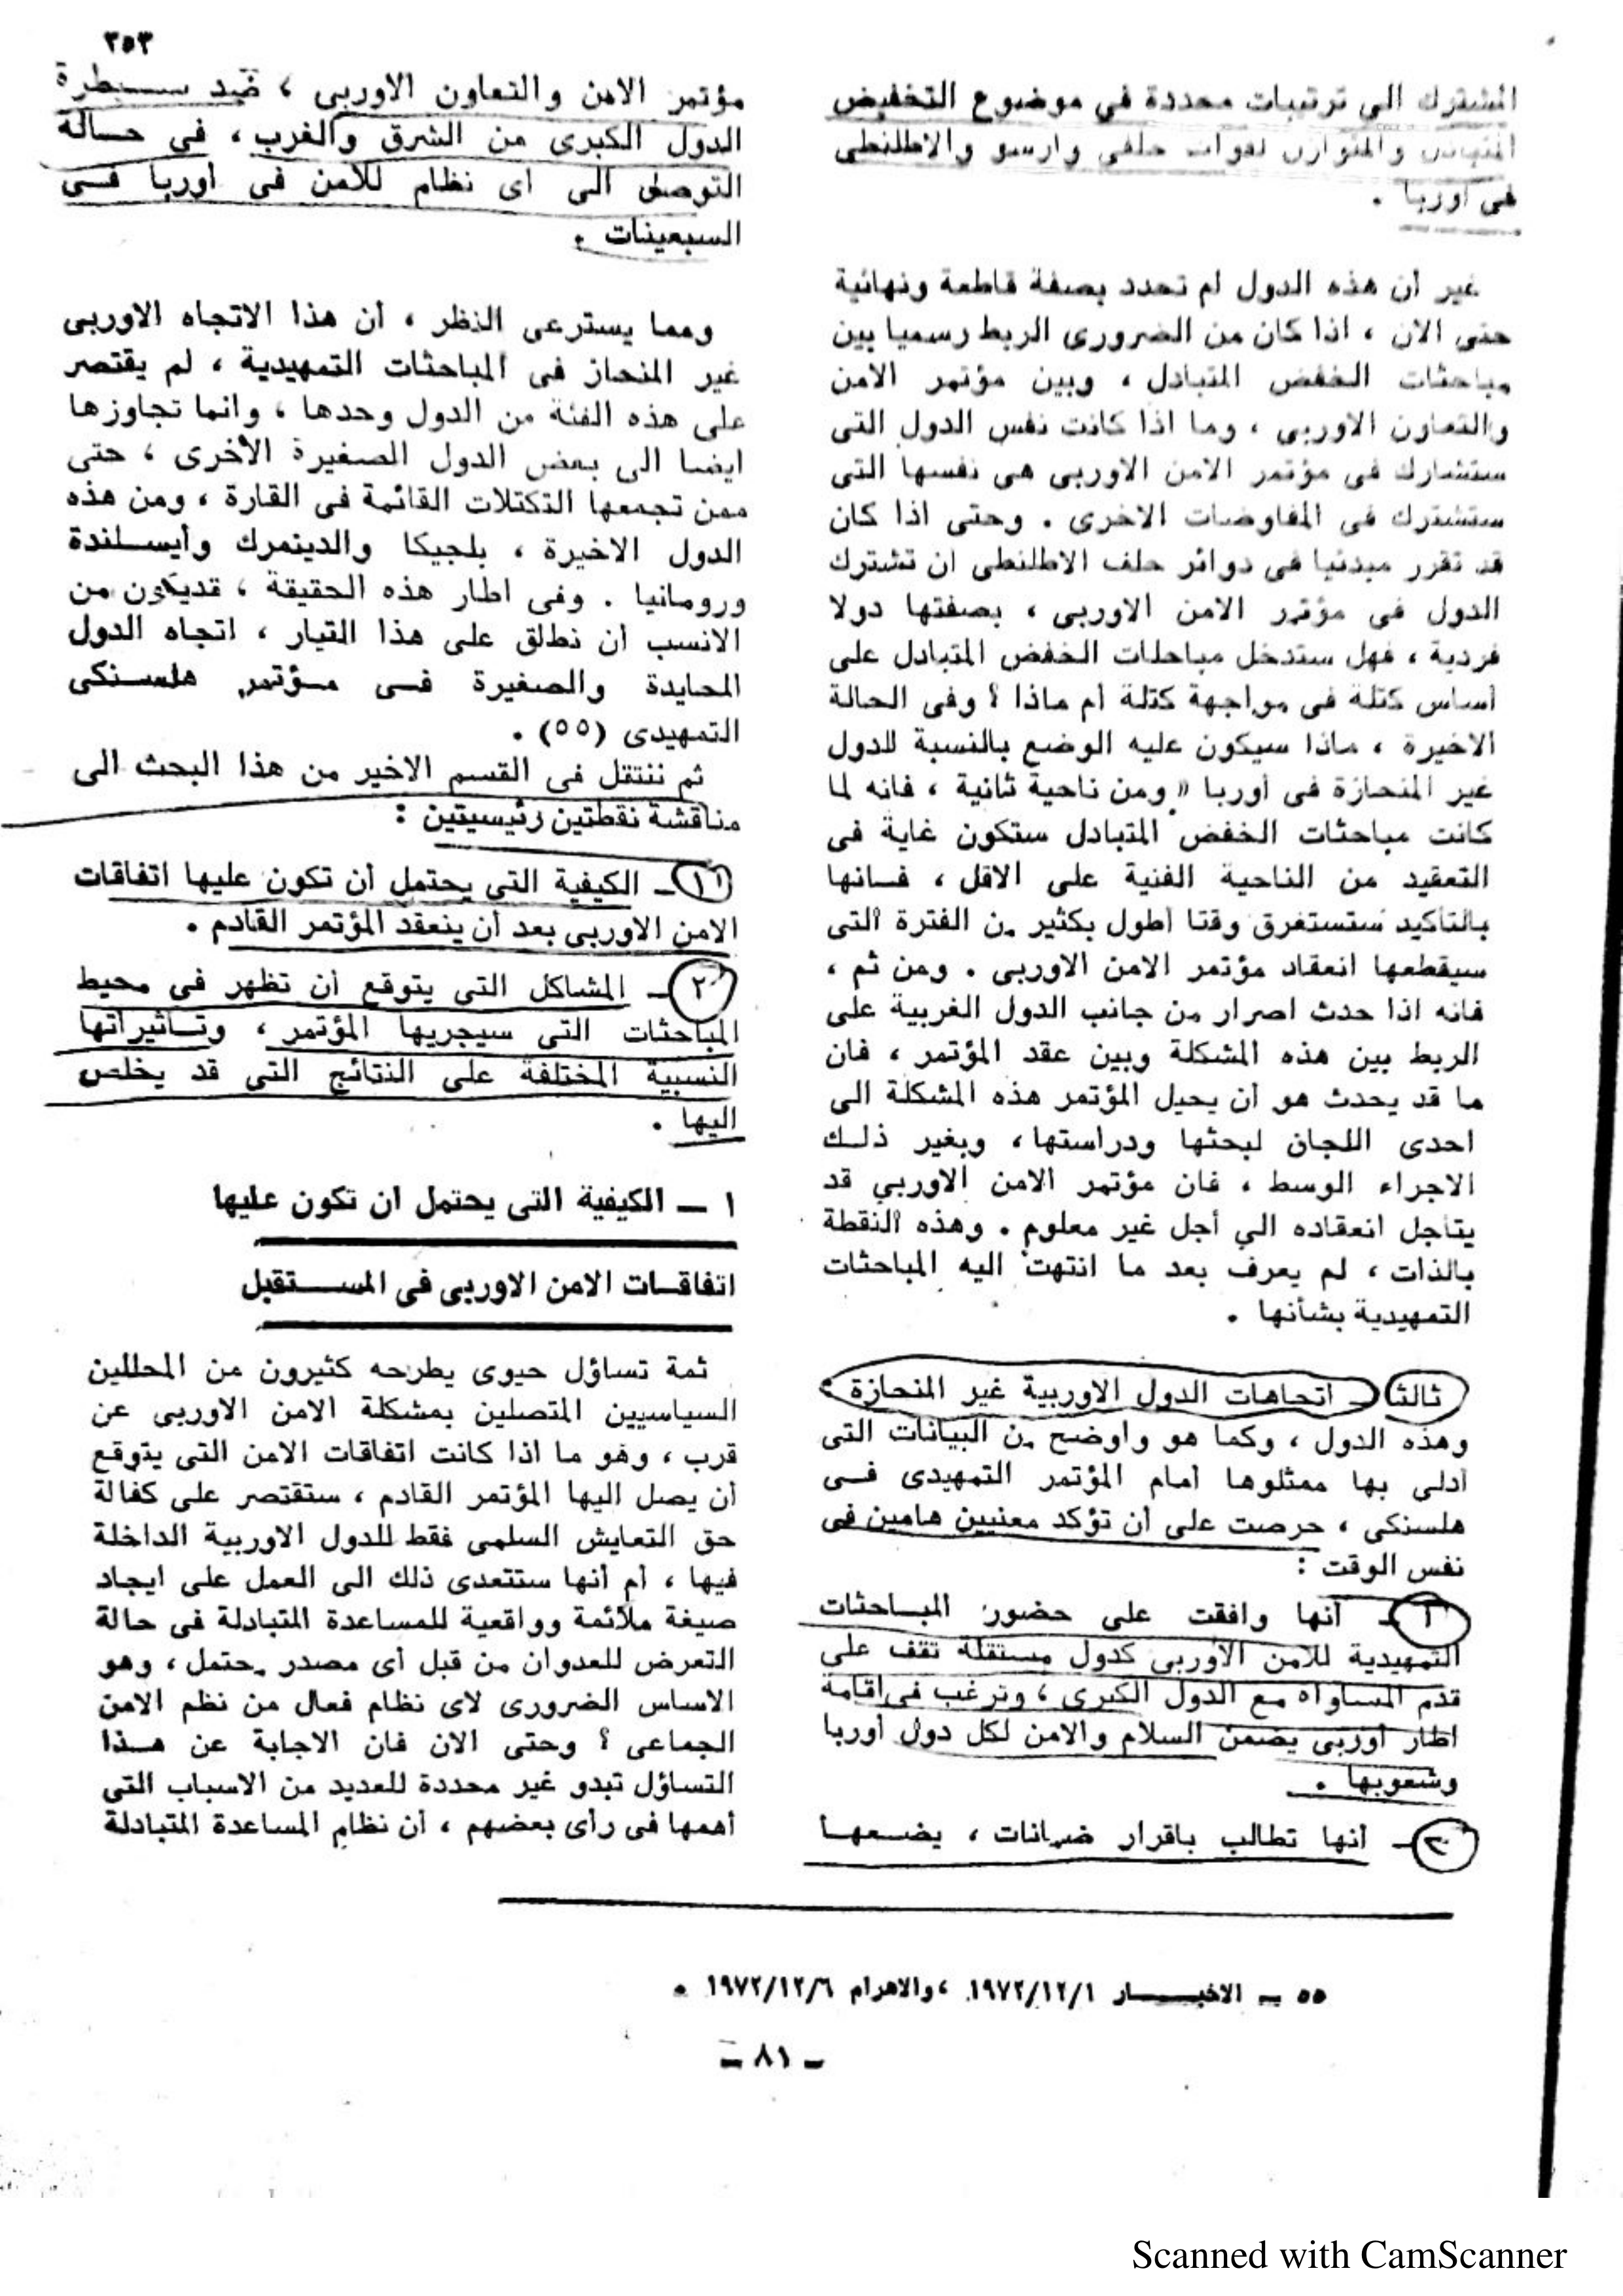 ٣٥٣
المشترك الى ترتيبات محددة فى موضوع التخفيض
المتبادل والمتوازن لقوات حلفى وارسو والاطلنطى
فى أوربا .
غير أن هذه الدول لم تحدد بصفة قاطعة ونهائية
حتى الان ، اذا كان من الضرورى الربط رسميا بين
مباحثات الخفض المتبادل ، وبين مؤتمر الامن
والتعاون الاوربى ، وما اذا كانت نفس الدول التى
ستشارك فى مؤتمر الامن الاوربى هى نفسها التى
ستشترك فى المفاوضات الاخرى . وحتى اذا كان
قد تقرر مبدئيا فى دوائر حلف الاطلنطى ان تشترك
الدول فى مؤتمر الامن الاوربى ، بصفتها دولا
فردية ، فهل ستدخل مباحثات الخفض المتبادل على
أساس كتلة فى مواجهة كتلة أم ماذا ؟ وفى الحالة
الاخيرة ، ماذا سيكون عليه الوضع بالنسبة للدول
غير المنحازة فى أوربا « ومن ناحية ثانية ، فانه لما
كانت مباحثات الخفض المتبادل ستكون غاية فى
التعقيد من الناحية الفنية على الاقل ، فسانها
بالتأكيد ستستغرق وقتا أطول بكثير من الفترة التى
سيقطعها انعقاد مؤتمر الامن الاوربى . ومن ثم ،
فانه اذا حدث اصرار من جانب الدول الغربية على
الربط بين هذه المشكلة وبين عقد المؤتمر ، فان
ما قد يحدث هو أن يحيل المؤتمر هذه المشكلة الى
احدى اللجان لبحثها ودراستها ، وبغير ذلك
الاجراء الوسط ، فان مؤتمر الامن الاوربي قد
يتأجل انعقاده الي أجل غير معلوم . وهذه النقطة
بالذات ، لم يعرف بعد ما انتهت اليه المباحثات
التمهيدية بشأنها .
ثالثا ـ اتجاهات الدول الاوربية غير المنحازة :
وهذه الدول ، وكما هو وأوضح من البيانات التى
أدلى بها ممثلوها أمام المؤتمر التمهيدى فى
هلسنكى ، حرصت على أن تؤكد معنيين هامين فى
نفس الوقت :
١ ـ أنها وافقت على حضور المباحثات
التمهيدية للأمن الأوربى كدول مستقلة تقف على
قدم المساواة مع الدول الكبرى ، وترغب فى اقامة
اطار أوربى يضمن السلام والامن لكل دول أوربا
وشعوبها .
٢ ـ أنها تطالب باقرار ضمانات ، يضعها
مؤتمر الامن والتعاون الاوربى ، ضد سيطرة
الدول الكبرى من الشرق والغرب ، فى حالة
التوصل الى أى نظام للأمن فى أوربا فى
السبعينات .
ومما يسترعى النظر ، أن هذا الاتجاه الاوربى
غير المنحاز فى المباحثات التمهيدية ، لم يقتصر
على هذه الفئة من الدول وحدها ، وانما تجاوزها
ايضا الى بعض الدول الصغيرة الأخرى ، حتى
ممن تجمعها التكتلات القائمة فى القارة ، ومن هذه
الدول الاخيرة ، بلجيكا والدينمرك وأيسلندة
ورومانيا . وفى اطار هذه الحقيقة ، قد يكون من
الانسب أن نطلق على هذا التيار ، اتجاه الدول
المحايدة والصغيرة فى مؤتمر هلسنكى
التمهيدى (٥٥) .
ثم ننتقل فى القسم الاخير من هذا البحث الى
مناقشة نقطتين رئيسيتين :
١ ـ الكيفية التى يحتمل أن تكون عليها اتفاقات
الامن الاوربى بعد أن ينعقد المؤتمر القادم .
٢ ـ المشاكل التى يتوقع أن تظهر فى محيط
المباحثات التى سيجريها المؤتمر ، وتأثيراتها
النسبية المختلفة على النتائج التى قد يخلص
اليها .
١ ـ الكيفية التى يحتمل ان تكون عليها
اتفاقات الامن الاوربى فى المستقبل
ثمة تساؤل حيوى يطرحه كثيرون من المحللين
السياسيين المتصلين بمشكلة الامن الاوربى عن
قرب ، وهو ما اذا كانت اتفاقات الامن التى يتوقع
أن يصل اليها المؤتمر القادم ، ستقتصر على كفالة
حق التعايش السلمى فقط للدول الاوربية الداخلة
فيها ، أم أنها ستتعدى ذلك الى العمل على ايجاد
صيغة ملائمة وواقعية للمساعدة المتبادلة فى حالة
التعرض للعدوان من قبل أى مصدر محتمل ، وهو
الاساس الضرورى لاى نظام فعال من نظم الامن
الجماعى ؟ وحتى الان فان الاجابة عن هذا
التساؤل تبدو غير محددة للعديد من الاسباب التى
أهمها فى رأى بعضهم ، أن نظام المساعدة المتبادلة
٥٥ ـ الاخبار ١٩٧٢/١٢/١ ، والاهرام ١٩٧٢/١٢/٦ .
ـ ٨١ ـ
Scanned with CamScanner